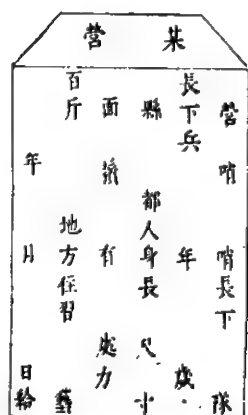 某營
營 哨 哨長下 隊
長下兵 年 歲
縣 都人身長 尺 寸
面 有 處力
百斤 地方住習 藝
年 月 日給